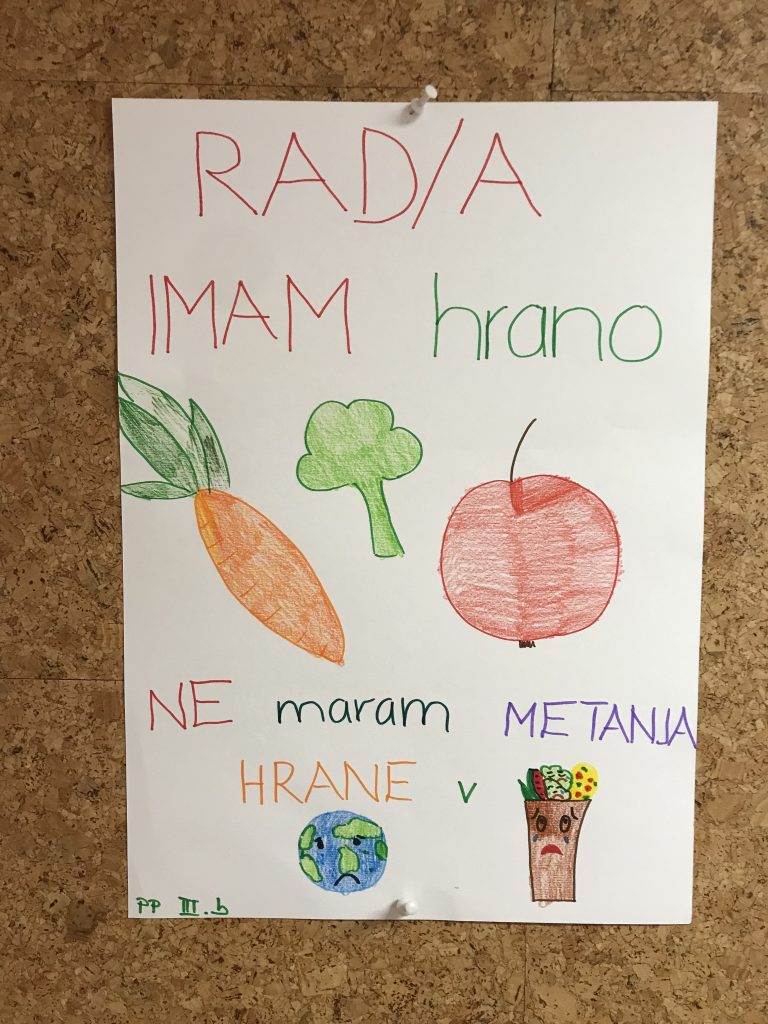 RAD/A
IMAM hrano
NE maram METANJA
HRANE v
PP III.b